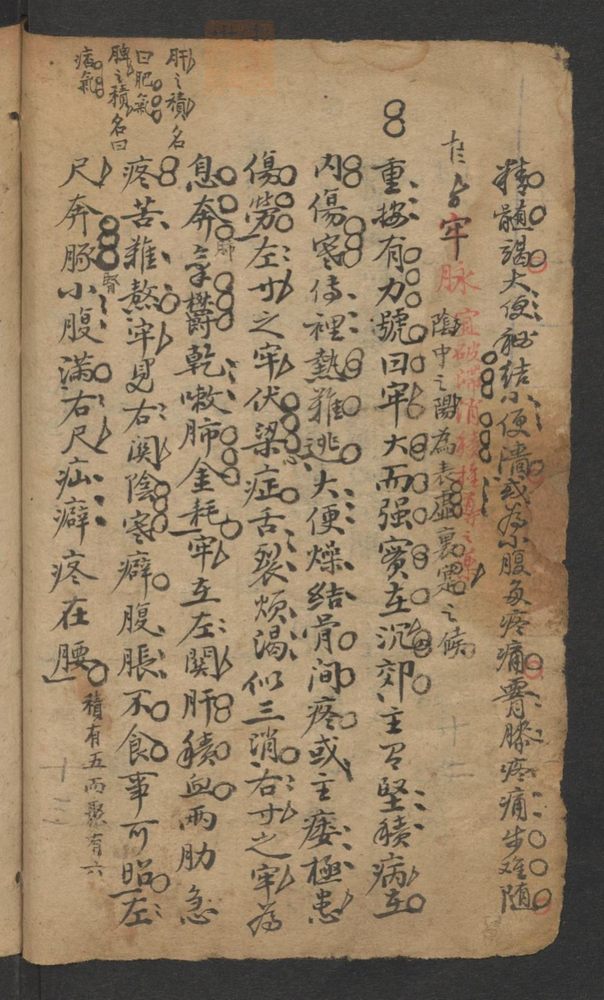 精髓竭大便秘結小便清或為小腹多疼痛胥膝疼痛步难随
牢脉宜破滿消積
陰中之陽為表虛裏寔之候
重按有力號曰牢大而强寔在沉郊主召堅積病立
內傷寒傳裡熱難逃大便燥結骨间疼或主痿極患
傷勞左寸之牢伏梁症舌裂煩渴似三消右寸之牢為
息奔
肺
欝乾嗽肺金耗牢在左関肝積血两肋急
疼苦難熬牢見右関陰寒癖腹脹不食事可明左
尺奔豚小腹滿右尺疝癖疼在腰
腎
積有五而聚有六
肝之積名
曰肥氣
脾之積名曰
痞氣
十二
十三